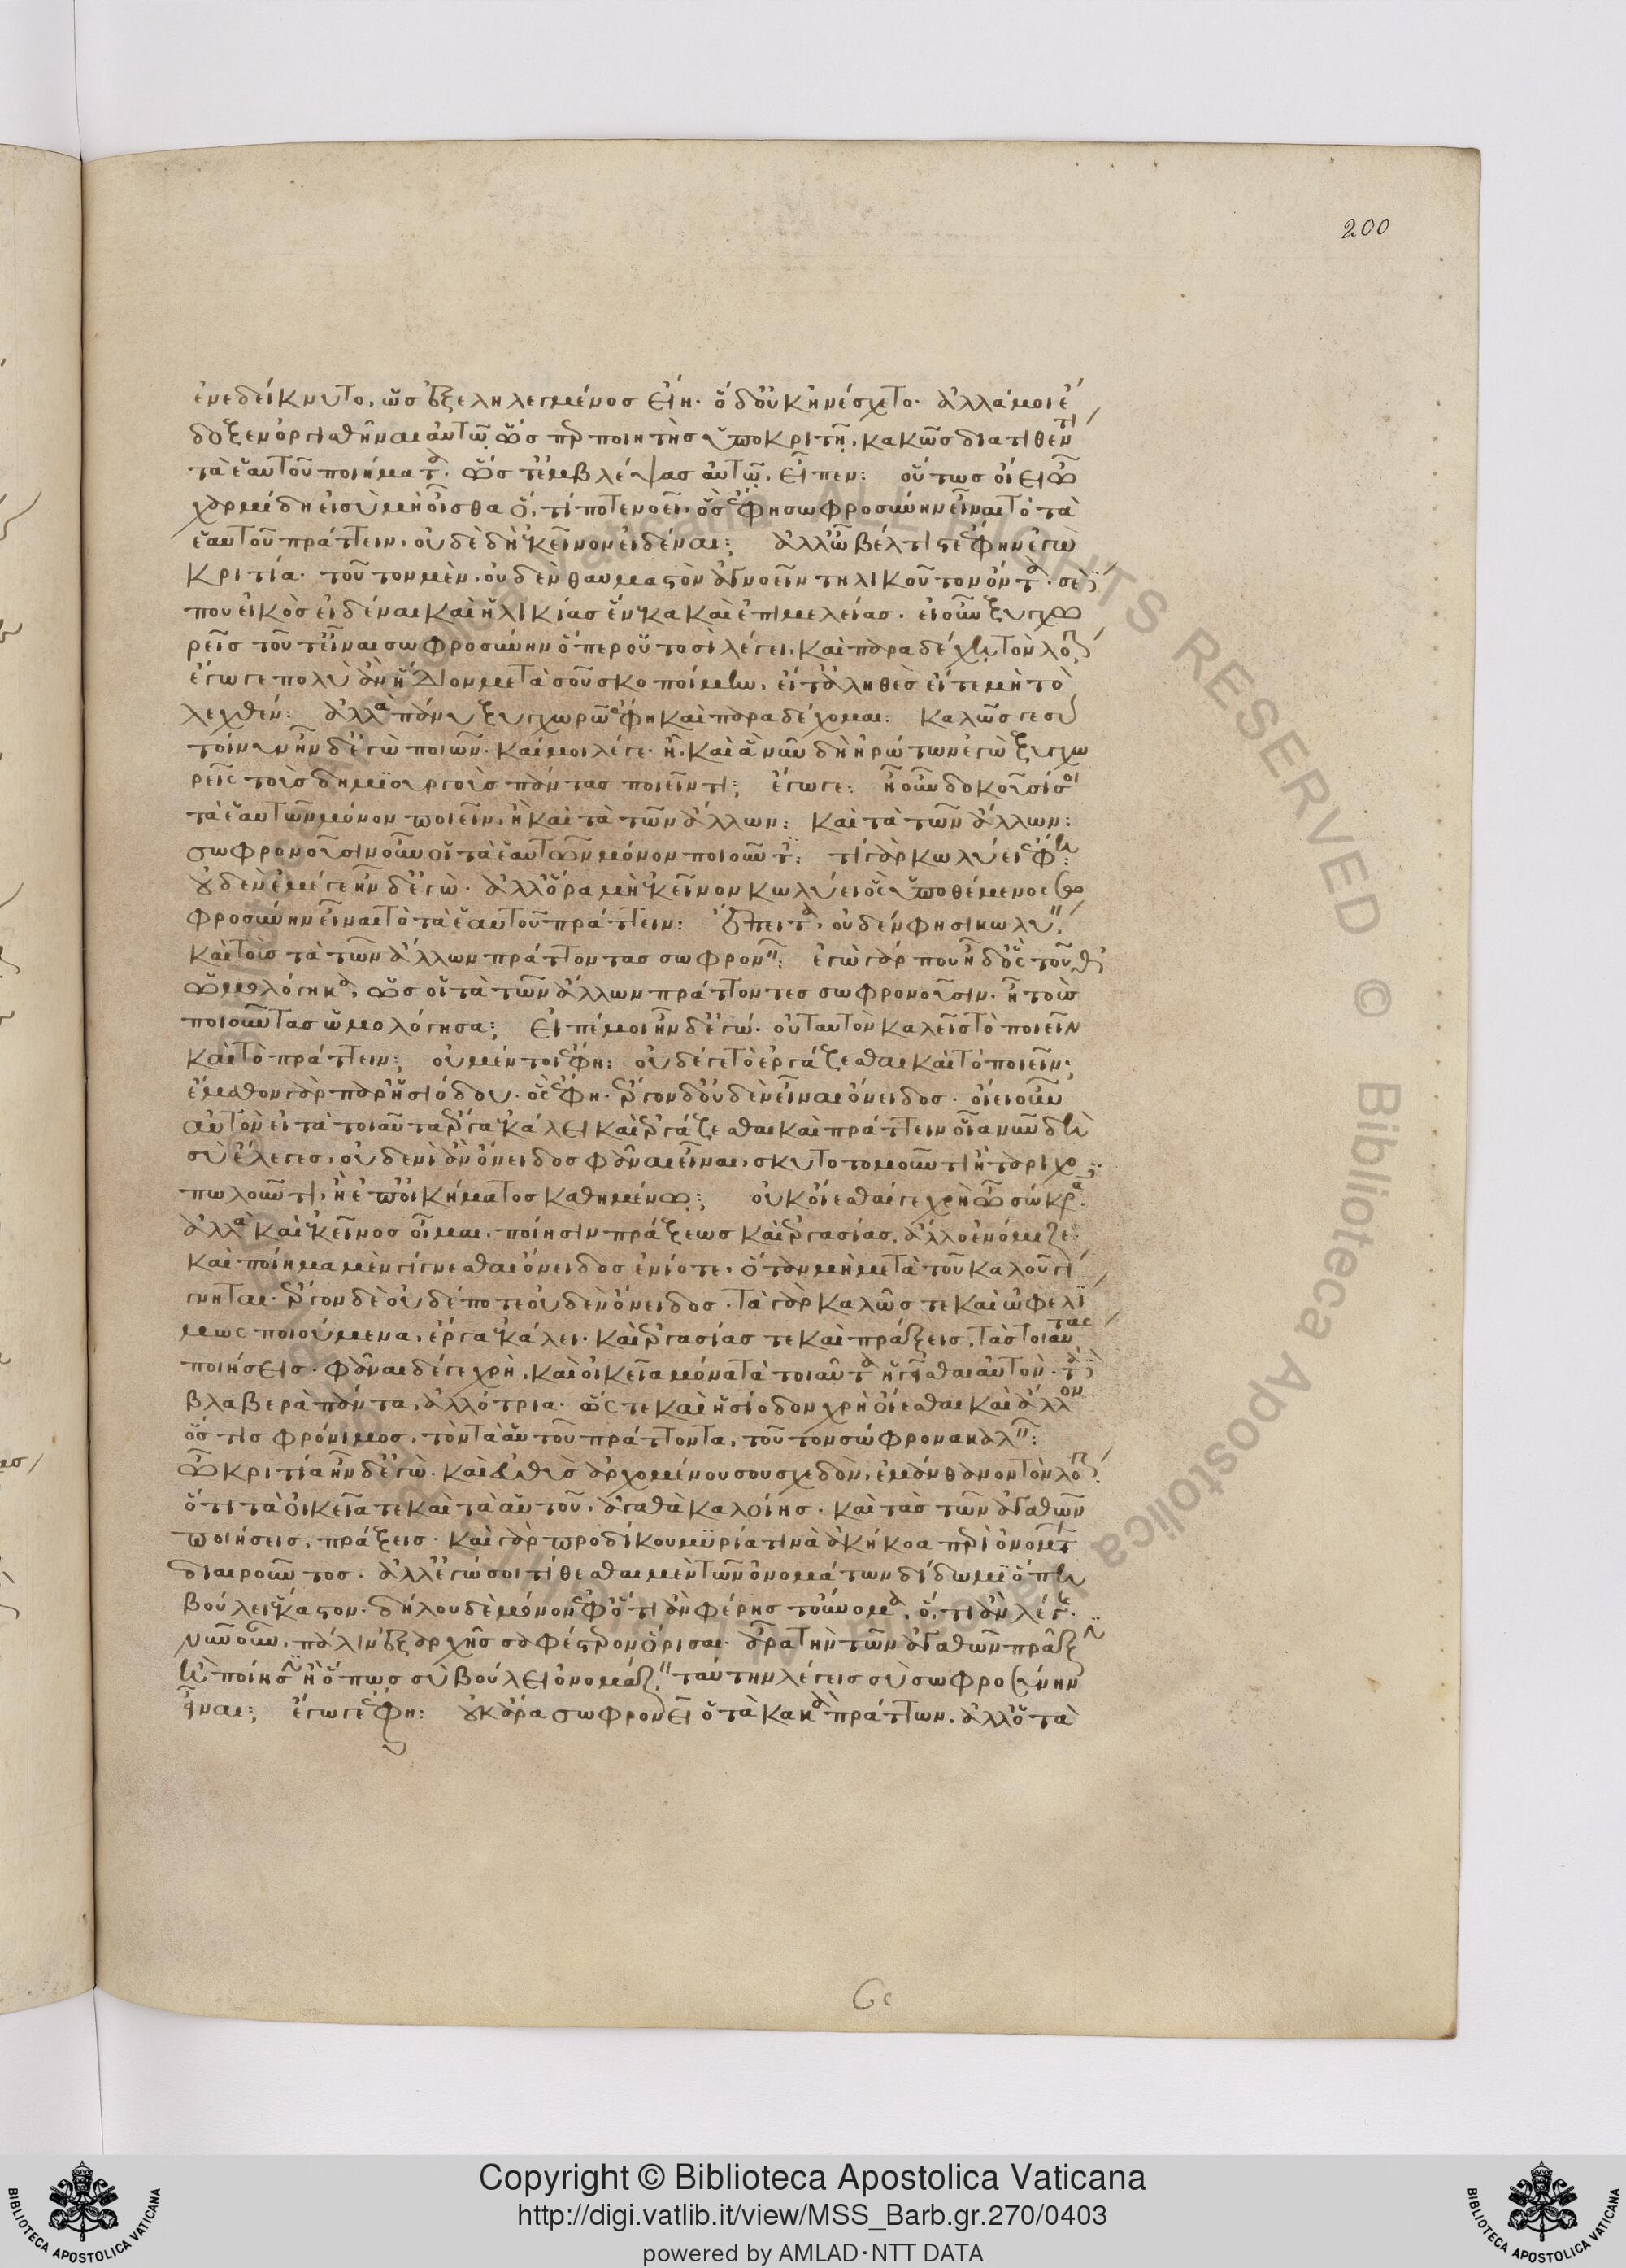 200
ἐνεδείκνυτο, ὡς ἐξεληλεγμένος εἴη. ὁ δ' οὐκ ἠνέσχετο. ἀλλά μοι ἔ
δοξεν ὀργισθῆναι αὐτῷ ὥσπερ ποιητὴς ὑποκριτῇ, κακῶς διατιθέντι
τὰ ἑαυτοῦ ποιήματα. ὥστ' ἐμβλέψας αὐτῷ, εἶπεν: οὕτως οἴει ὦ
χαρμίδη εἰ σὺ μὴ οἶσθα ὅ, τί ποτ' ἐνόει, ὃς ἔφη σωφροσύνην εἶναι τὸ τὰ
ἑαυτοῦ πράττειν, οὐδὲ δὴ 'κεῖνον εἰδέναι; ἀλλ' ὦ βέλτιστε ἔφην ἐγὼ
κριτία. τοῦτον μὲν, οὐδὲν θαυμαστὸν ἀγνοεῖν τηλικοῦτον ὄντα. σὲ δέ
που εἰκὸς εἰδέναι καὶ ἡλικίας ἕνεκα καὶ ἐπιμελείας. εἰ οὖν ξυγχω
ρεῖς τοῦτ' εἶναι σωφροσύνην ὅπερ οὑτοσὶ λέγει, καὶ παραδέχῃ τὸν λόγον
ἔγωγε πολὺ ἂν ἥδιον μετὰ σοῦ σκοποίμην, εἴτ' ἀληθὲς εἴτε μὴ τὸ
λεχθέν: ἀλλὰ πάνυ ξυγχωρῶ ἔφη καὶ παραδέχομαι: καλῶς γε σὺ
τοίνυν ἦν δ' ἐγὼ ποιῶν. καί μοι λέγε. ἦ, καὶ ἃ νῦν δὴ ἠρώτων ἐγὼ ξυγχω
ρεῖς τοὺς δημιουργοὺς πάντας ποιεῖν τι; ἔγωγε: ἦ οὖν δοκοῦσί σοι
τὰ ἑαυτῶν μόνον ποιεῖν, ἢ καὶ τὰ τῶν ἄλλων: καὶ τὰ τῶν ἄλλων:
σωφρονοῦσιν οὖν οὐ τὰ ἑαυτῶν μόνον ποιοῦντες: τί γὰρ κωλύει ἔφη:
οὐδὲν ἐμέ γε ἦν δ' ἐγὼ. ἀλλ' ὅρα μὴ 'κεῖνον κωλύει ὃς ὑποθέμενος σω
φροσύνην εἶναι τὸ τὰ ἑαυτοῦ πράττειν: ἔπειτα, οὐδέν φησι κωλύειν
καὶ τοὺς τὰ τῶν ἄλλων πράττοντας σωφρονεῖν: ἐγὼ γάρ που ἦ δ' ὃς τοῦθ'
ὡμολόγηκα, ὡς οἱ τὰ τῶν ἄλλων πράττοντες σωφρονοῦσιν. ἢ τοὺς
ποιοῦντας ὡμολόγησα; εἰπέ μοι ἦν δ' ἐγώ. οὐ ταυτὸν καλεῖς τὸ ποιεῖν
καὶ τὸ πράττειν; οὐ μέντοι ἔφη: οὐδέ γε τὸ ἐργάζεσθαι καὶ τὸ ποιεῖν;
ἔμαθον γὰρ παρ' ἡσιόδου. ὃς ἔφη. ἔργον δ' οὐδὲν εἶναι ὄνειδος. οἴει οὖν
αὐτὸν εἰ τὰ τοιαῦτα ἔργα 'κάλει καὶ ἐργάζεσθαι καὶ πράττειν οἷα νῦν δὴ
σὺ ἔλεγες, οὐδενὶ ἂν ὄνειδος φάναι εἶναι, σκυτοτομοῦντι ἢ ταριχο
πωλοῦντι, ἢ ἐπ' οἰκήματος καθημένῳ; οὐκ οἴεσθαί γε χρὴ ὦ σώκρατες.
ἀλλὰ καὶ 'κεῖνος οἶμαι, ποίησιν πράξεως καὶ ἐργασίας, ἄλλο ἐνόμιζε.
καὶ ποίημα μὲν γίγνεσθαι ὄνειδος ἐνίοτε, ὅταν μὴ μετὰ τοῦ καλοῦ γί
γνηται. ἔργον δὲ οὐδέποτε οὐδὲν ὄνειδος. τὰ γὰρ καλῶς τε καὶ ὠφελί
μως ποιούμενα, ἔργα 'κάλει. καὶ ἐργασίας τε καὶ πράξεις, τὰς τοιαύτας
ποιήσεις. φάναι δέ γε χρὴ, καὶ οἰκεῖα μόνα τὰ τοιαῦτα ἡγεῖσθαι αὐτὸν. τὰ δὲ
βλαβερὰ πάντα, ἀλλότρια. ὥστε καὶ ἡσίοδον χρὴ οἴεσθαι καὶ ἄλλον
ὅστις φρόνιμος, τὸν τὰ αὑτοῦ πράττοντα, τοῦτον σώφρονα καλεῖν:
ὦ κριτία ἦν δ' ἐγὼ. καὶ εὐθὺς ἀρχομένου σου σχεδὸν, ἐμάνθανον τὸν λόγον
ὅτι τὰ οἰκεῖά τε καὶ τὰ αὑτοῦ, ἀγαθὰ καλοίης. καὶ τὰς τῶν ἀγαθῶν
ποιήσεις, πράξεις. καὶ γὰρ προδίκου μυρία τινὰ ἀκήκοα περὶ ὀνομάτων
διαιροῦντος. ἀλλ' ἐγώ σοι τίθεσθαι μὲν τῶν ὀνομάτων δίδωμι ὅπῃ
βούλει ἕκαστον. δήλου δὲ μόνον ἐφ' ὅ τι ἂν φέρῃς τοὔνομα, ὅ, τι ἂν λέγῃς.
νῦν οὖν, πάλιν ἐξ ἀρχῆς σαφέστερον ὅρισαι. ἆρα τὴν τῶν ἀγαθῶν πρᾶξιν
ἢ ποίησιν ἢ ὅπως σὺ βούλει ὀνομάζειν, ταύτην λέγεις σὺ σωφροσύνην
εἶναι; ἔγωγε ἔφη: οὐκ ἄρα σωφρονεῖ ὁ τὰ κακὰ πράττων, ἀλλ' ὁ τὰ
Copyright © Biblioteca Apostolica Vaticana
http://digi.vatlib.it/view/MSS_Barb.gr.270/0403
powered by AMLAD·NTT DATA